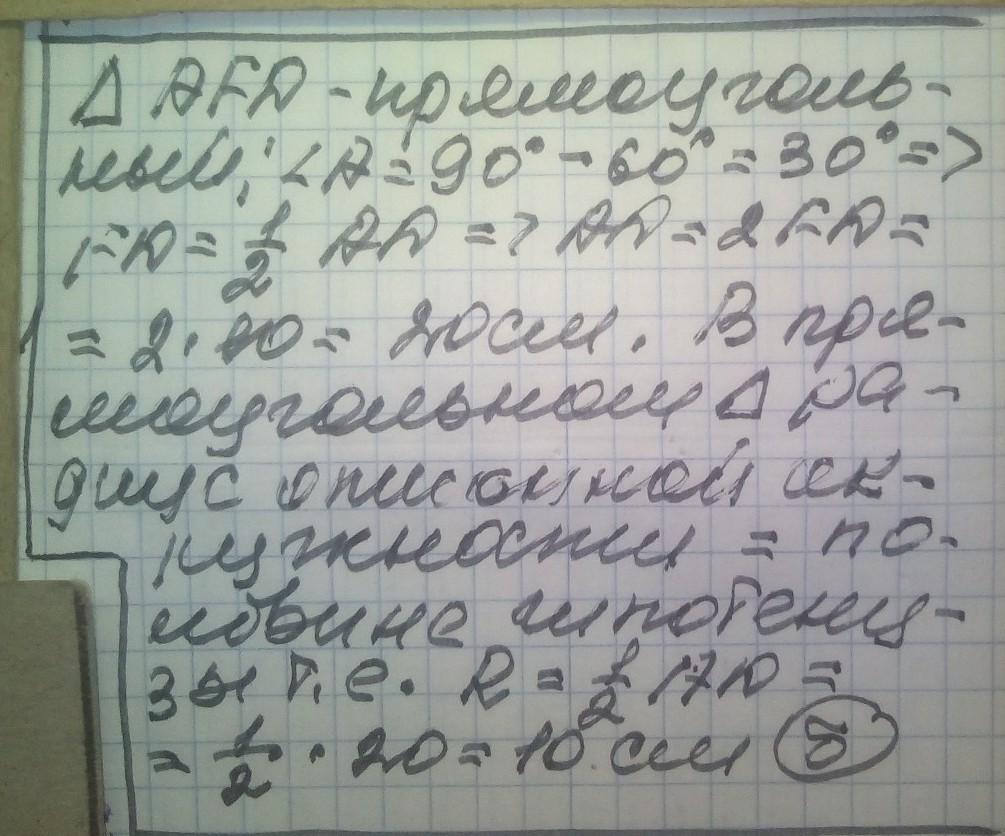 Δ AFD - прямоуголь-
ный; ∠A = 90° - 60° = 30° =>
FD = 1/2 AD => AD = 2 FD =
= 2 · 10 = 20 см. В пря-
моугольном Δ ра-
диус описанной ок-
ружности = по-
ловине гипотену-
зы т.е. R = 1/2 AD =
= 1/2 · 20 = 10 см б